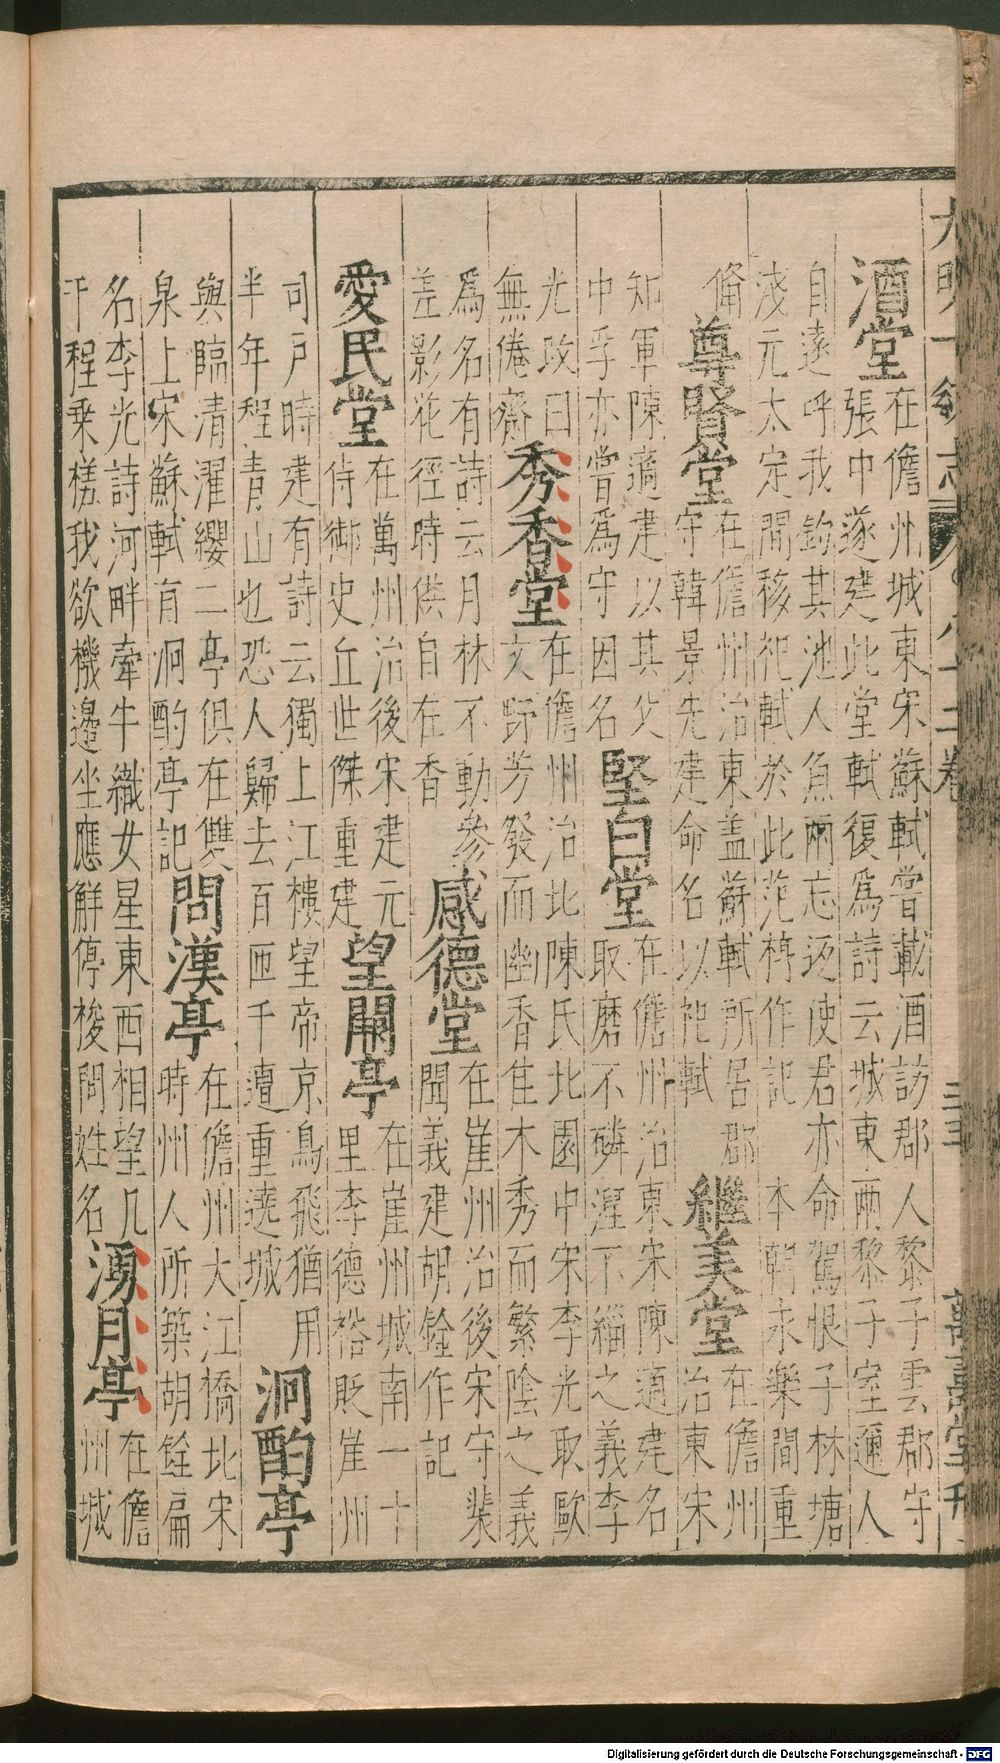 大明一統志
萬壽堂刊
酒堂
在儋州城東宋蘇軾嘗載酒訪郡人黎子雲郡守
張中遂建此堂軾復爲詩云城東兩黎子室邇人
自遠呼我釣其池人魚兩忘返使君亦命駕恨子林塘
淺元太定間移祀軾於此范梈作記 本朝永樂間重
脩
尊賢堂
在儋州治東蓋蘇軾所居郡
守韓景先建命名以祀軾
繼美堂
在儋州
治東宋
知軍陳適建以其父
中孚亦嘗爲守因名
堅白堂
在儋州治東宋陳適建名
取磨不磷涅不緇之義李
光改曰
無倦齋
秀香堂
在儋州治北陳氏北園中宋李光取歐
文野芳發而幽香佳木秀而繁陰之義
爲名有詩云月林不動參
差影花徑時供自在香
感德堂
在崖州治後宋守裴
聞義建胡銓作記
愛民堂
在萬州治後宋建元
侍御史丘世傑重建
望闕亭
在崖州城南一十
里李德裕貶崖州
司戶時建有詩云獨上江樓望帝京鳥飛猶用
半年程青山也恐人歸去百匝千遭重遶城
泂酌亭
與臨清濯纓二亭俱在雙
泉上宋蘇軾有泂酌亭記
問漢亭
在儋州大江橋北宋
時州人所築胡銓扁
名李光詩河畔牽牛織女星東西相望几
千程乗槎我欲機邊坐應解停梭問姓名
湧月亭
在儋
州城
Digitalisierung gefördert durch die Deutsche Forschungsgemeinschaft - DFG